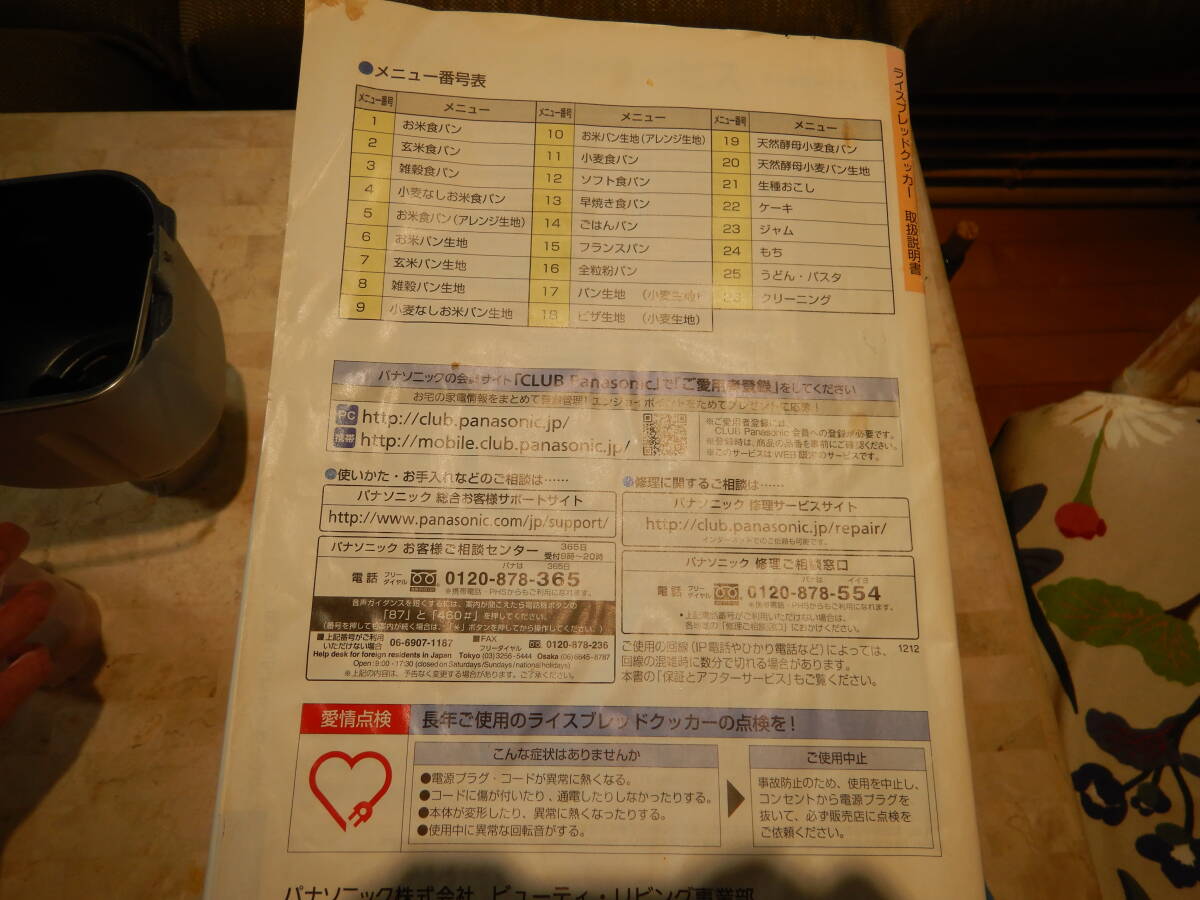 ライスブレッドクッカー 取扱説明書
●メニュー番号表
メニュー番号 メニュー メニュー番号 メニュー メニュー番号 メニュー
1 お米食パン 10 お米パン生地(アレンジ生地) 19 天然酵母小麦食パン
2 玄米食パン 11 小麦食パン 20 天然酵母小麦パン生地
3 雑穀食パン 12 ソフト食パン 21 生種おこし
4 小麦なしお米食パン 13 早焼き食パン 22 ケーキ
5 お米食パン(アレンジ生地) 14 ごはんパン 23 ジャム
6 お米パン生地 15 フランスパン 24 もち
7 玄米パン生地 16 全粒粉パン 25 うどん・パスタ
8 雑穀パン生地 17 パン生地 (小麦生地) 26 クリーニング
9 小麦なしお米パン生地 18 ピザ生地 (小麦生地)
パナソニックの会員サイト「CLUB Panasonic」で「ご愛用者登録」をしてください
お宅の家電情報をまとめて登録管理!エンジョイポイントをためてプレゼントに応募!
PC http://club.panasonic.jp/
携帯 http://mobile.club.panasonic.jp/
※ご愛用者登録には、
CLUB Panasonic 会員への登録が必要です。
※登録時は、商品の品番を事前にご確認ください。
※このサービスはWEB限定のサービスです。
●使いかた・お手入れなどのご相談は……
パナソニック 総合お客様サポートサイト
http://www.panasonic.com/jp/support/
パナソニック お客様ご相談センター 365日 受付9時~20時
電話 フリーダイヤル パナは 365日 0120-878-365
※携帯電話・PHSからもご利用になれます。
音声ガイダンスを短くするには、案内が聞こえたら電話機ボタンの
「87」と「460#」を押してください。
(番号を押しても案内が続く場合は、「*」ボタンを押してから操作してください。)
■上記番号がご利用いただけない場合 06-6907-1187 ■FAX フリーダイヤル 0120-878-236
Help desk for foreign residents in Japan Tokyo (03) 3256-5444 Osaka (06) 6645-8787
Open : 9:00 - 17:30 (closed on Saturdays/Sundays/national holidays)
※上記の内容は、予告なく変更する場合があります。ご了承ください。
●修理に関するご相談は……
パナソニック 修理サービスサイト
http://club.panasonic.jp/repair/
インターネットでのご依頼も可能です。
パナソニック 修理ご相談窓口
電話 フリーダイヤル パナは イイヨ 0120-878-554
※携帯電話・PHSからもご利用になれます。
•上記電話番号がご利用いただけない場合は、
各地域の「修理ご相談窓口」におかけください。
ご使用の回線(IP電話やひかり電話など)によっては、
回線の混雑時に数分で切れる場合があります。
本書の「保証とアフターサービス」もご覧ください。
1212
愛情点検 長年ご使用のライスブレッドクッカーの点検を!
こんな症状はありませんか
●電源プラグ・コードが異常に熱くなる。
●コードに傷が付いたり、通電したりしなかったりする。
●本体が変形したり、異常に熱くなったりする。
●使用中に異常な回転音がする。
ご使用中止
事故防止のため、使用を中止し、
コンセントから電源プラグを
抜いて、必ず販売店に点検を
ご依頼ください。
パナソニック株式会社 ビューティ・リビング事業部